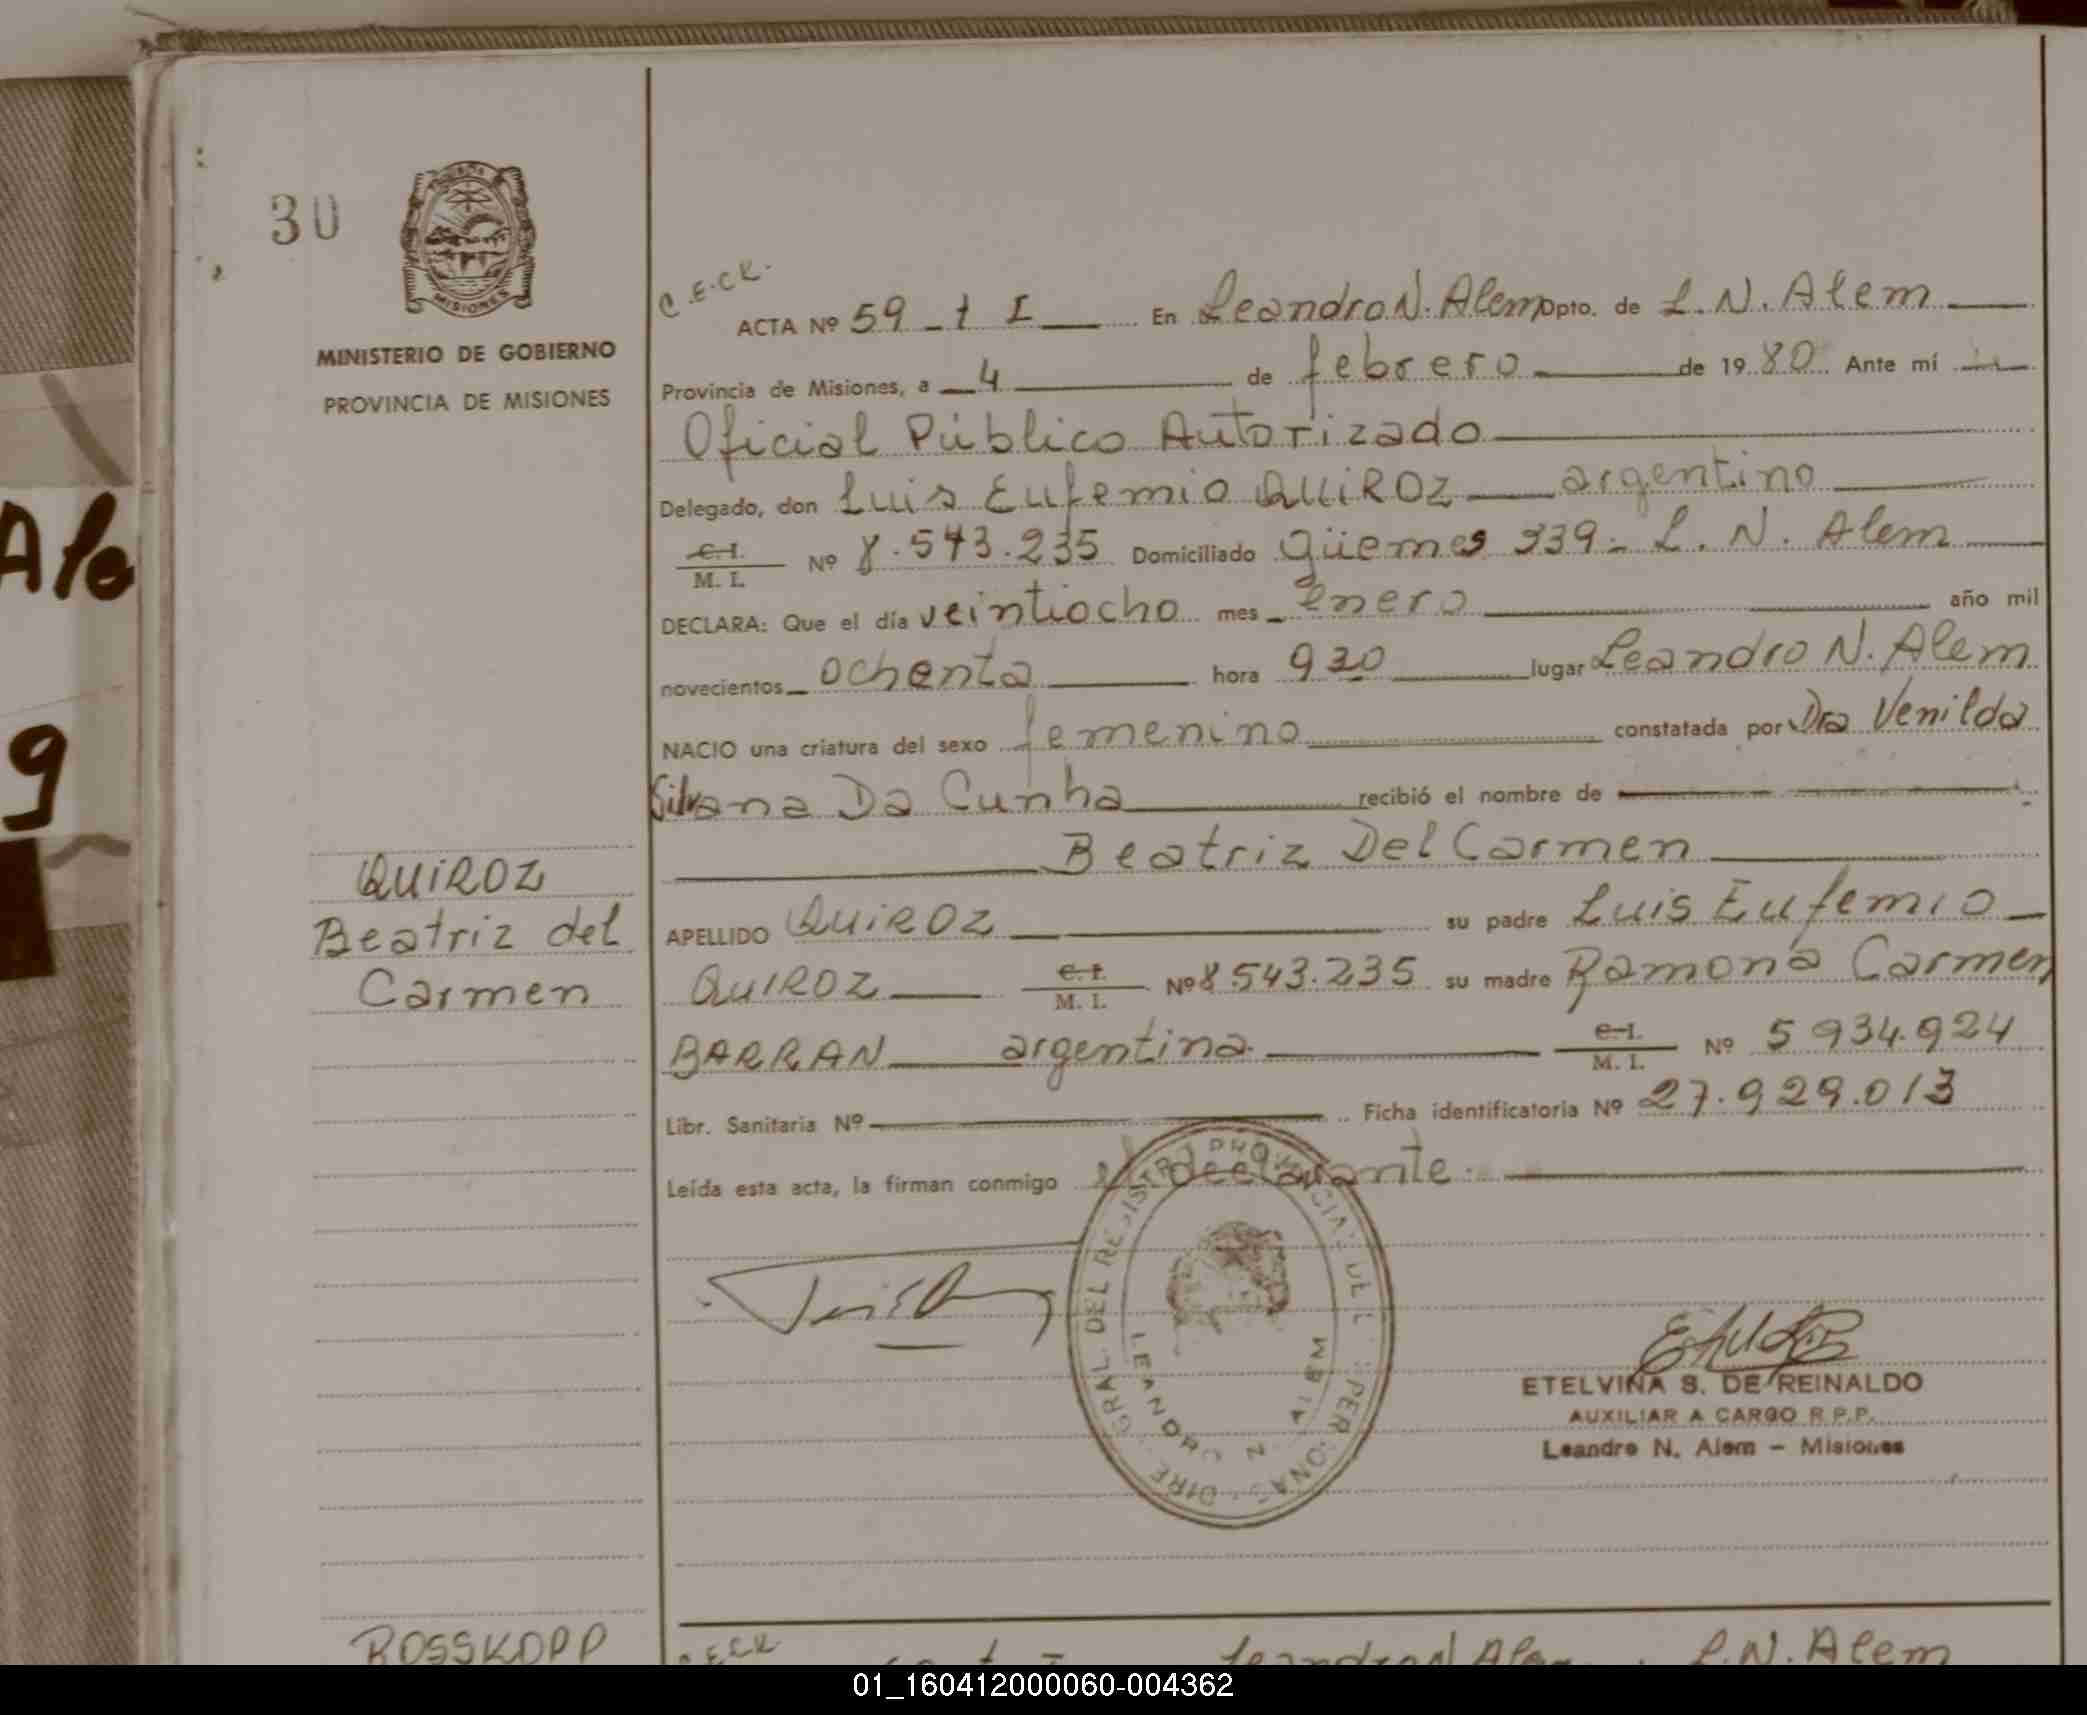 30
MISIONES
MINISTERIO DE GOBIERNO
PROVINCIA DE MISIONES
Ale
9
QUIROZ
Beatriz del
Carmen
C.E.C.R.
ACTA Nº 59 - t I En Leandro N. Alem Dpto. de L. N. Alem
Provincia de Misiones, a 4 de febrero de 1980 Ante mí
Oficial Público Autorizado
Delegado, don Luis Eufemio QUIROZ argentino
C. I.
M. I. Nº 8.543.235 Domiciliado Güemes 339 - L. N. Alem
DECLARA: Que el día veintiocho mes Enero año mil
novecientos ochenta hora 930 lugar Leandro N. Alem
NACIO una criatura del sexo femenino constatada por Dra Venilda
Silvana Da Cunha recibió el nombre de
Beatriz Del Carmen
APELLIDO QUIROZ su padre Luis Eufemio
QUIROZ C. I. M. I. Nº 8.543.235 su madre Ramona Carmen
BARRAN argentina C. I. M. I. Nº 5.934.924
Libr. Sanitaria Nº Ficha identificatoria Nº 27.929.013
Leída esta acta, la firman conmigo el declarante.
GRAL. DEL REGISTRO PROVINCIAL DE PERSONAS
LEANDRO N. ALEM
ETELVINA S. DE REINALDO
AUXILIAR A CARGO R.P.P.
Leandro N. Alem - Misiones
ROSSKOPP
Leandro N Alem L.N. Alem
01_160412000060-004362